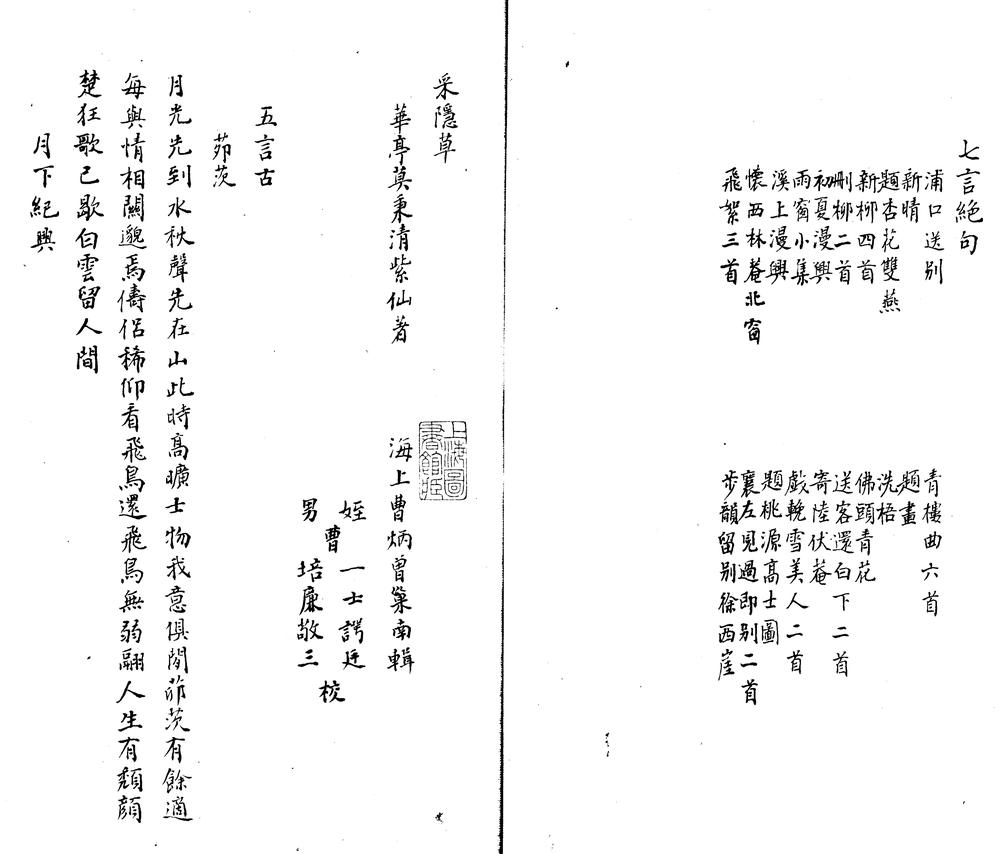 七言絕句
浦口送别
新晴
題杏花雙燕
新柳四首
刪柳二首
初夏漫興
雨窗小集
溪上漫興
懷西林菴北窗
飛絮三首
青樓曲六首
題畫
洗梧
佛頭青花
送客還白下二首
寄陸伏菴
戲輓雪美人二首
題桃源高士圖
襄左見過即别二首
步韻留别徐西崖
采隱草
華亭莫秉清紫仙著
海上曹炳曾巢南輯
姪
曹一士諤廷
男
培廉敬三
校
上海圖書館藏
五言古
茆茨
月光先到水秋聲先在山此時高曠士物我意俱閒茆茨有餘適
每與情相關邈焉儔侣稀仰看飛鳥還飛鳥無弱翮人生有頹顔
楚狂歌已歇白雲留人間
月下紀興